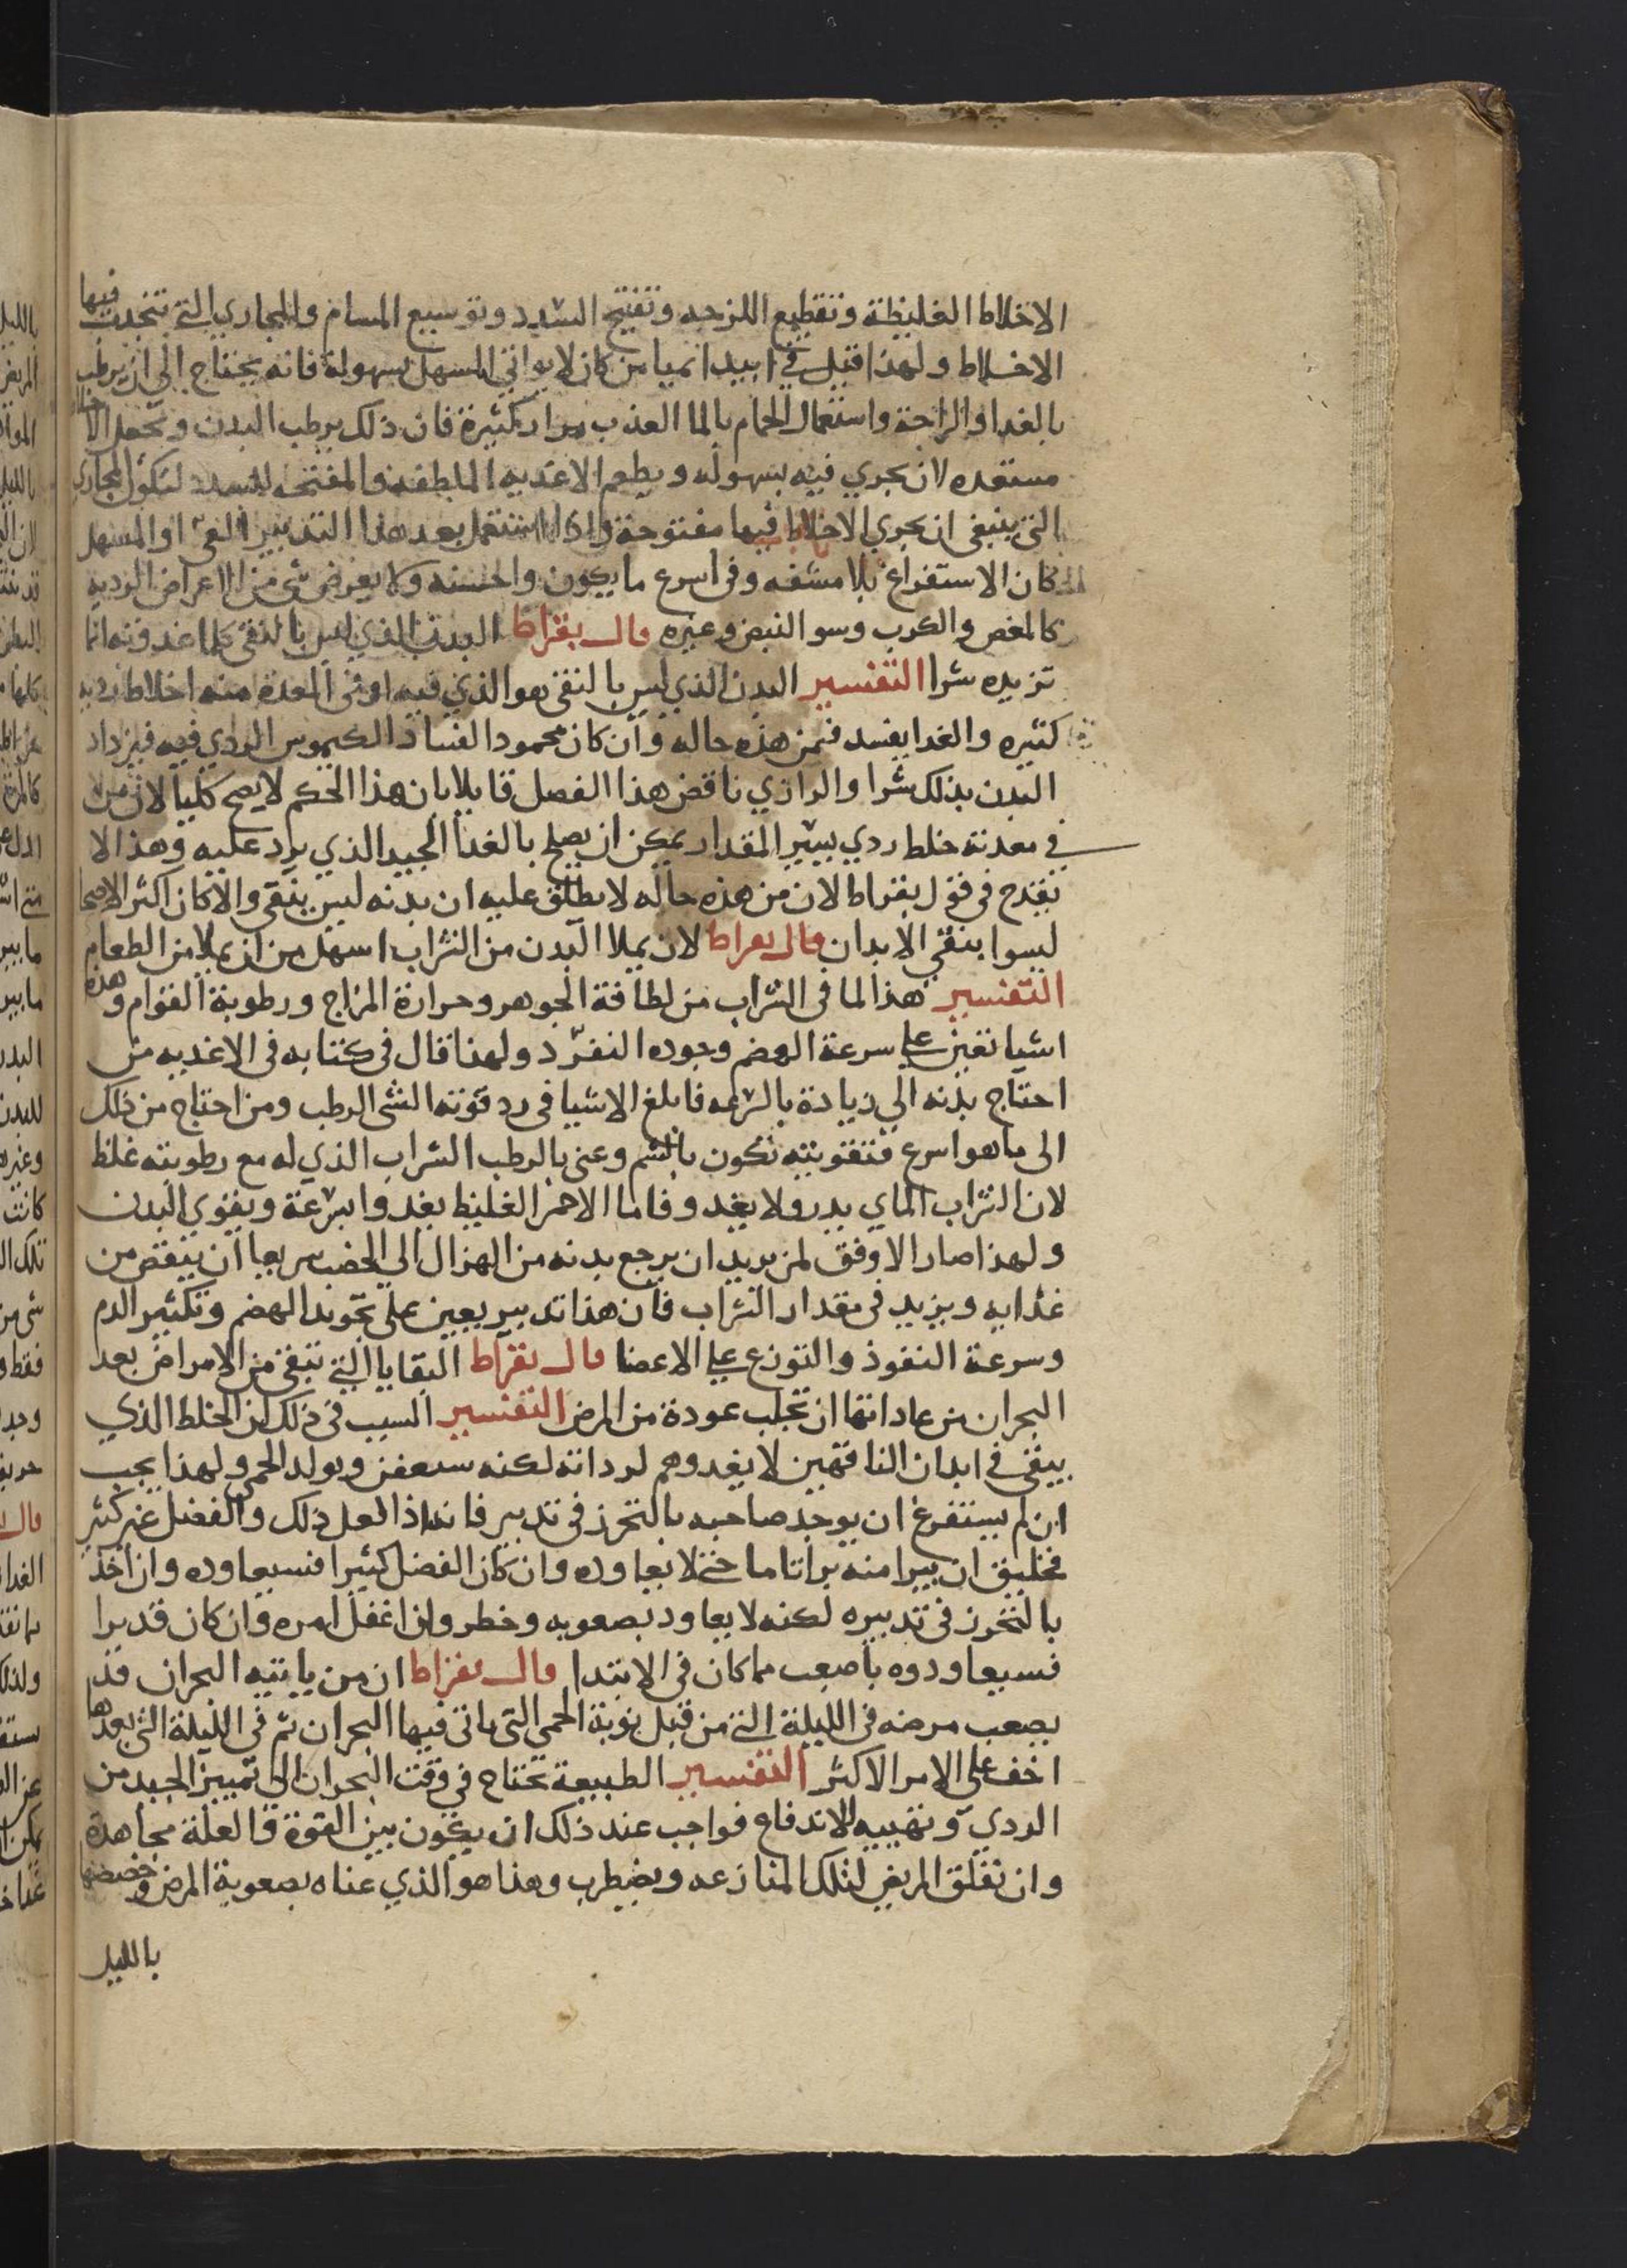 الاخلاط الغليظة وتقطيع اللزجه وتفتيح السدد وتوسيع المسام والمجاري التي تنجذب فيها
الاخلاط ولهذا قيل في ابيديميا من كان لا يواتي المسهل بسهولة فانه يحتاج الى ان يرطب
بالغدا والراحة واستعمال الحمام بالما العذب مرار كثيرة فان ذلك يرطب البدن ويجعل الاخلاط
مستعده لان يجري فيه بسهوله ويطعم الاغديه الملطفه والمفتحه للسدد لتكون المجاري
التي ينبغي ان يجري الاخلاط فيها مفتوحة واذا استعمل بعد هذا التدبير القى او المسهل
كان الاستفراغ بلا مشقه وفى اسرع ما يكون واحسنه ولا يعرض شى من الاعراض الرديه
كالمغص والكرب وسو النبض وغيره قال بقراط البدن الذي ليس بالنقى كلما غدوته انما
تزيده شرا التفسير البدن الذي ليس بالنقى هو الذي فيه او فى المعدة منه اخلاط رديه
كثيره والغدا يفسد فيمن هذه حاله وان كان محمودا لفساد الكيموس الردي فيه فيزداد
البدن بذلك شرا والرازي ناقض هذا الفصل قايلا بان هذا الحكم لا يصح كليا لان من
في معدته خلط ردي يسير المقدار يمكن ان يصلح بالغدا الجيد الذي يرد عليه وهذا لا
يقدح فى قول بقراط لان من هذه حاله لا يطلق عليه ان بدنه ليس بنقى والا كان اكثر الاصحا
ليسوا بنقي الابدان قال بقراط لان يملا البدن من الشراب اسهل من ان يملا من الطعام
التفسير هذا لما فى الشراب من لطافة الجوهر وحرارة المزاج ورطوبة القوام وهذه
اشيا تعين على سرعة الهضم وجوده النفوذ ولهذا قال فى كتابه فى الاغديه من
احتاج بدنه الي زيادة بالسرعه فابلغ الاشيا فى رد قوته الشى الرطب ومن احتاج من ذلك
الى ما هو اسرع فتقويته تكون بالشم وعنى بالرطب الشراب الذي له مع رطوبته غلظ
لان الشراب الماي يدر ولا يغدو فاما الاحمر الغليظ يغدوا بسرعة ويقوي البدن
ولهذا صار الاوفق لمن يريد ان يرجع بدنه من الهزال الي الخصب سريعا ان ينقص من
غذايه ويزيد فى مقدار الشراب فان هذا تدبير يعين على تجويد الهضم وتكثير الدم
وسرعة النفوذ والتوزع على الاعضا قال بقراط البقايا التي تبقى من الامراض بعد
البحران من عاداتها ان تجلب عودة من المرض التفسير السبب فى ذلك ان الخلط الذي
يبقى في ابدان الناقهين لا يغدوهم لرداته لكنه سيعفن ويولد الحمى ولهذا يجب
ان لم يستفرغ ان يوجد صاحبه بالتحرز فى تدبير فانه اذا فعل ذلك والفضل غير كثير
فخليق ان يبرا منه براتاما حتى لا يعاوده وان كان الفضل كثيرا فسيعاوده وان اخذ
بالتحرز فى تدبيره لكنه لا يعاود بصعوبه وخطر وان اغفل امره وان كان قد يرا
فسيعاودوه باصعب مما كان فى الابتدا قال بقراط ان من ياتيه البحران قد
يصعب مرضه فى الليلة التى من قبل نوبة الحمى التى ياتى فيها البحران ثم فى الليلة التى بعدها
اخف على الامر الاكثر التفسير الطبيعة تحتاج في وقت البحران الى تمييز الجيد من
الردي وتهييه للاندفاع فواجب عند ذلك ان يكون بين القوة والعلة مجاهدة
وان تقلق المريض لتلك المنازعه ويضطرب وهذا هو الذي عناه بصعوبة المرض وخصصها
بالليل